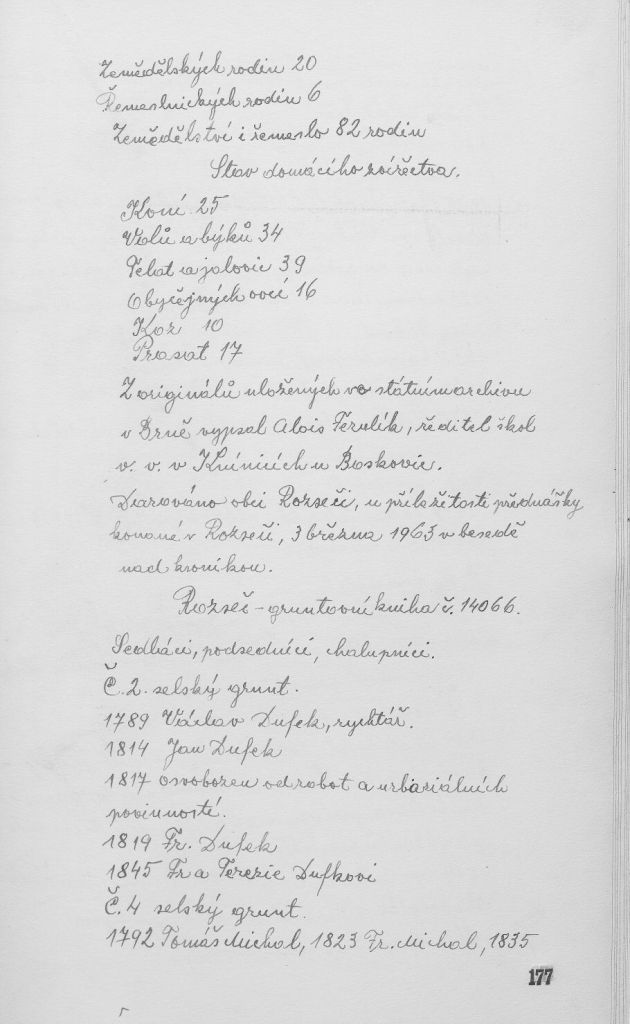 Zemědělských rodin 20
Řemeslnických rodin 6
Zemědělství i řemeslo 82 rodin
Stav domácího zvířectva.
Koní 25
Volů a býků 34
Telat a jalovic 39
Obyčejných ovcí 16
Koz 10
Prasat 17
Z originálů uložených ve státním archivu
v Brně vypsal Alois Těrulík, ředitel škol
v. v. v Knínicích u Boskovic.
Darováno obci Rozseči, u příležitosti přednášky
konané v Rozseči, 3 března 1963 v besedě
nad kronikou.
Rozseč - gruntovní kniha č. 14066.
Sedláci, podsedníci, chalupníci.
Č. 2. selský grunt.
1789 Václav Dufek, rychtář.
1814 Jan Dufek
1817 osvobozen od robot a urbariálních
povinností.
1819 Fr. Dufek
1845 Fr a Terezie Dufkovi
Č. 4 selský grunt.
1792 Tomáš Michal, 1823 Fr. Michal, 1835
177